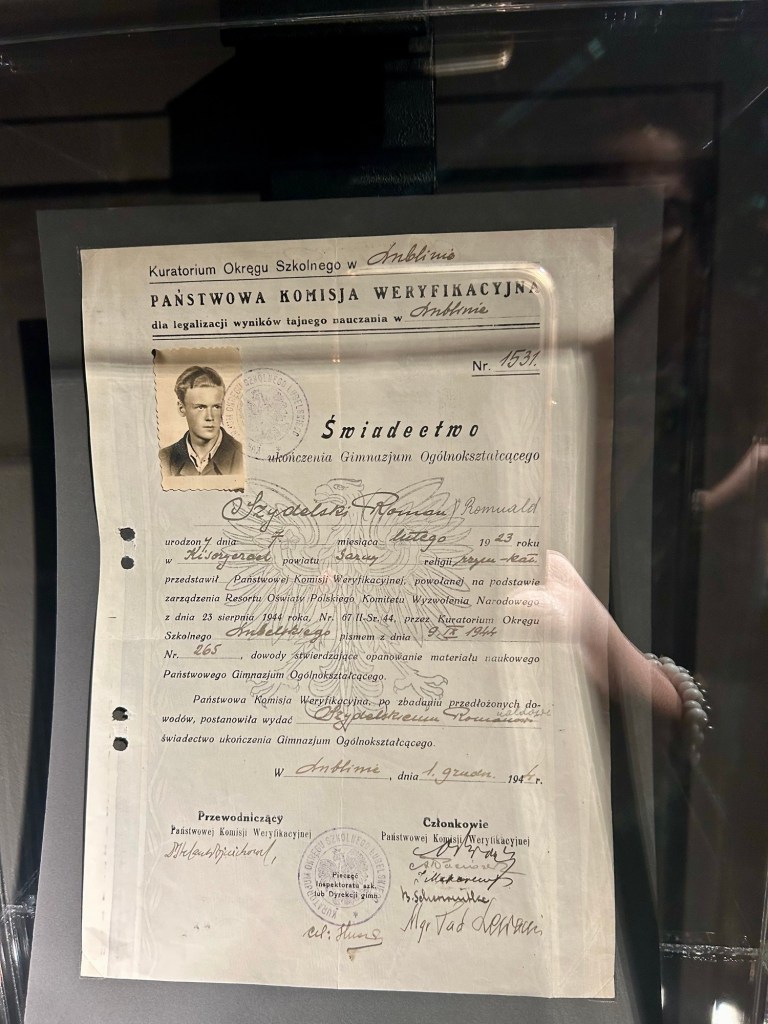 Kuratorium Okręgu Szkolnego w Lublinie
PAŃSTWOWA KOMISJA WERYFIKACYJNA
dla legalizacji wyników tajnego nauczania w Lublinie
Nr. 1531.
Świadectwo
ukończenia Gimnazjum Ogólnokształcącego
Szydelski Roman Romuald
urodzony dnia 7 miesiąca lutego 1923 roku
w powiatu Sarny religii rzym-kat.
przedstawił Państwowej Komisji Weryfikacyjnej, powołanej na podstawie
zarządzenia Resortu Oświaty Polskiego Komitetu Wyzwolenia Narodowego
z dnia 23 sierpnia 1944 roku, Nr. 67 II-Sr. 44, przez Kuratorium Okręgu
Szkolnego Lubelskiego pismem z dnia 9.IX 1944
Nr. 265, dowody stwierdzające opanowanie materiału naukowego
Państwowego Gimnazjum Ogólnokształcącego.
Państwowa Komisja Weryfikacyjna, po zbadaniu przedłożonych do-
wodów, postanowiła wydać Szydelskiemu Romanowi
świadectwo ukończenia Gimnazjum Ogólnokształcącego.
W Lublinie, dnia 1. grudn. 1944 r.
Przewodniczący
Państwowej Komisji Weryfikacyjnej
Członkowie
Państwowej Komisji Weryfikacyjnej
Pieczęć
Inspektoratu szk.
lub Dyrekcji gimn.
Mgr Tad